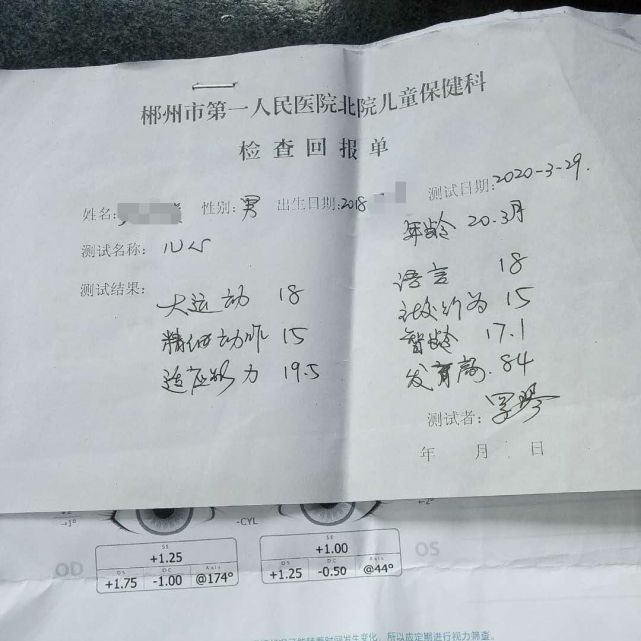 郴州市第一人民医院北院儿童保健科
检查回报单
姓名: 性别:男 出生日期:2018 测试日期:2020-3-29.
年龄 20.3月
测试名称: 儿心
测试结果:
大运动 18 语言 18
精细动作 15 社交行为 15
适应能力 19.5 智龄 17.1
发育商. 84
测试者:
年 月 日
→1° -CYL ←2°
OD OS
SE SE
+1.25 +1.00
DS DC Axis DS DC Axis
+1.75 -1.00 @174° +1.25 -0.50 @44°
发生变化，所以应定期进行视力筛查。